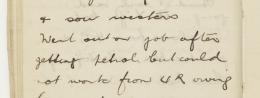 & sou westers
Went out on job after
getting petrol but could
not work from W R owing